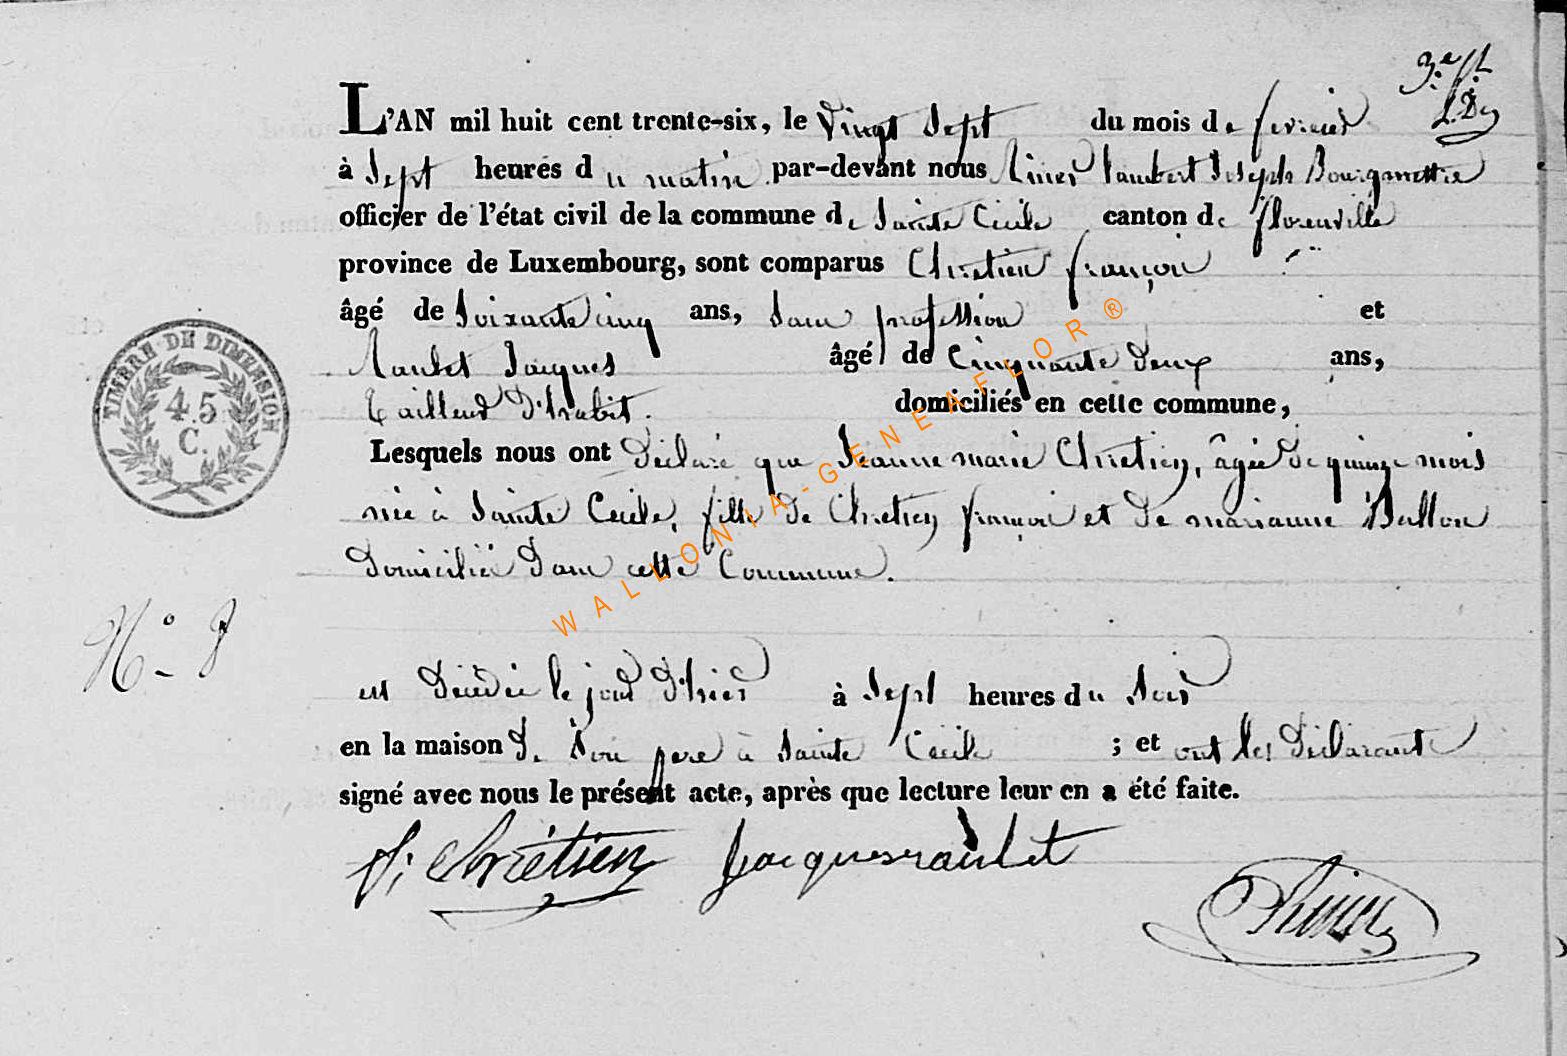 3.e
L'AN mil huit cent trente-six, le vingt sept du mois de fevrier
à sept heures du matin par-devant nous Lambert Joseph Bourgmettre
officier de l'état civil de la commune de Sainte Cécile canton de florenville
province de Luxembourg, sont comparus Chretien françois
âgé de soixante cinq ans, sans profession et
Raulet Jacques âgé de cinquante deux ans,
tailleur d'habit. domiciliés en cette commune,
Lesquels nous ont déclaré que Jeanne marie Chretien, âgée de quinze mois
née à Sainte Cecile, fille de Chretien françois et de marianne Ballon
domicilié dans cette Commune.
est décédée le jour d'hier à sept heures du soir
en la maison de son pere à Sainte Cécile ; et ont les déclarants
signé avec nous le présent acte, après que lecture leur en a été faite.
f; chrétien Jacques raulet
N.o 8
TIMBRE DE DIMENSION
45
C.
WALLONIA-GENEAFLOR®